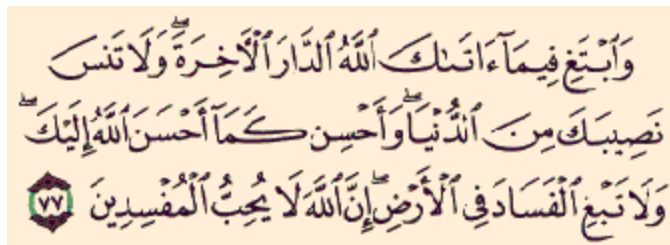 وَٱبۡتَغِ فِيمَآ ءَاتَىٰكَ ٱللَّهُ ٱلدَّارَ ٱلۡأٓخِرَةَۖ وَلَا تَنسَ
نَصِيبَكَ مِنَ ٱلدُّنۡيَاۖ وَأَحۡسِن كَمَآ أَحۡسَنَ ٱللَّهُ إِلَيۡكَۖ
وَلَا تَبۡغِ ٱلۡفَسَادَ فِي ٱلۡأَرۡضِۖ إِنَّ ٱللَّهَ لَا يُحِبُّ ٱلۡمُفۡسِدِينَ ٧٧